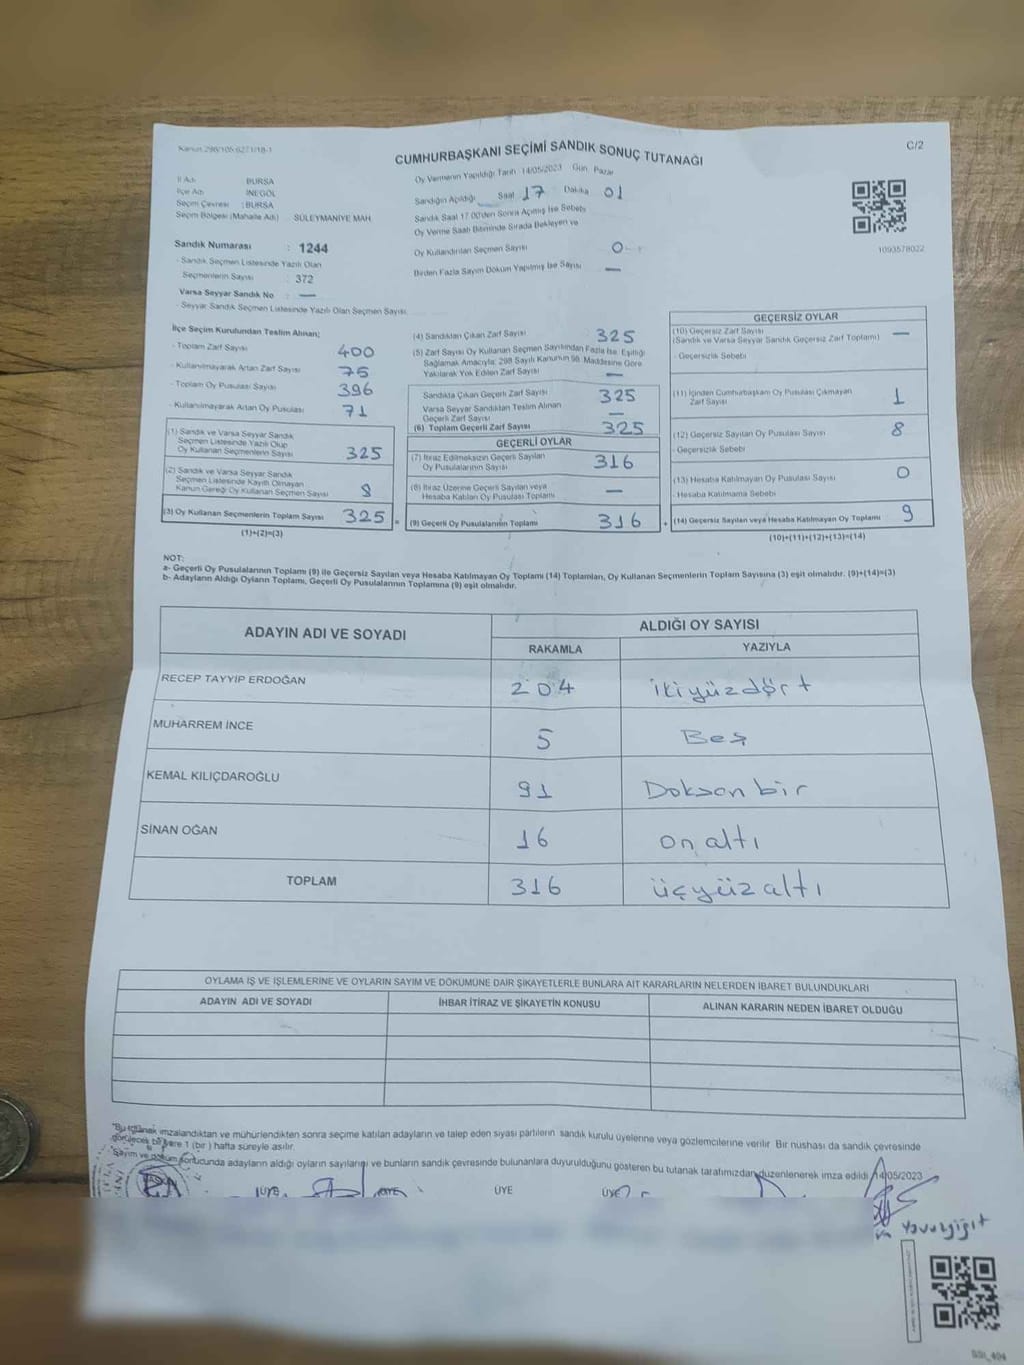 Kanun 298/105 6271/18-1
CUMHURBAŞKANI SEÇİMİ SANDIK SONUÇ TUTANAĞI
C/2
İl Adı BURSA
İlçe Adı İNEGÖL
Seçim Çevresi : BURSA
Seçim Bölgesi (Mahalle Adı) SÜLEYMANİYE MAH.
Oy Vermenin Yapıldığı Tarih 14/05/2023 Gün Pazar
Sandığın Açıldığı Saat 17 Dakika 01
Sandık Saat 17.00'den Sonra Açılmış İse Sebebi
Oy Verme Saati Bitiminde Sırada Bekleyen ve
Oy Kullandırılan Seçmen Sayısı 0
Birden Fazla Sayım Döküm Yapılmış İse Sayısı —
1093578022
Sandık Numarası : 1244
- Sandık Seçmen Listesinde Yazılı Olan
Seçmenlerin Sayısı : 372
Varsa Seyyar Sandık No : —
- Seyyar Sandık Seçmen Listesinde Yazılı Olan Seçmen Sayısı
İlçe Seçim Kurulundan Teslim Alınan;
- Toplam Zarf Sayısı 400
- Kullanılmayarak Artan Zarf Sayısı 75
- Toplam Oy Pusulası Sayısı 396
- Kullanılmayarak Artan Oy Pusulası 71
(1) Sandık ve Varsa Seyyar Sandık
Seçmen Listesinde Yazılı Olup
Oy Kullanan Seçmenlerin Sayısı 325
(2) Sandık ve Varsa Seyyar Sandık
Seçmen Listesinde Kayıtlı Olmayan
Kanun Gereği Oy Kullanan Seçmen Sayısı
(3) Oy Kullanan Seçmenlerin Toplam Sayısı 325 =
(1)+(2)=(3)
(4) Sandıktan Çıkan Zarf Sayısı 325
(5) Zarf Sayısı Oy Kullanan Seçmen Sayısından Fazla İse, Eşitliği
Sağlamak Amacıyla; 298 Sayılı Kanunun 98. Maddesine Göre
Yakılarak Yok Edilen Zarf Sayısı —
Sandıkta Çıkan Geçerli Zarf Sayısı 325
Varsa Seyyar Sandıktan Teslim Alınan
Geçerli Zarf Sayısı —
(6) Toplam Geçerli Zarf Sayısı 325
GEÇERLİ OYLAR
(7) İtiraz Edilmeksizin Geçerli Sayılan
Oy Pusulalarının Sayısı 316
(8) İtiraz Üzerine Geçerli Sayılan veya
Hesaba Katılan Oy Pusulası Toplamı —
(9) Geçerli Oy Pusulalarının Toplamı 316 +
GEÇERSİZ OYLAR
(10) Geçersiz Zarf Sayısı —
(Sandık ve Varsa Seyyar Sandık Geçersiz Zarf Toplamı)
- Geçersizlik Sebebi
(11) İçinden Cumhurbaşkanı Oy Pusulası Çıkmayan
Zarf Sayısı 1
(12) Geçersiz Sayılan Oy Pusulası Sayısı 8
- Geçersizlik Sebebi
(13) Hesaba Katılmayan Oy Pusulası Sayısı 0
- Hesaba Katılmama Sebebi
(14) Geçersiz Sayılan veya Hesaba Katılmayan Oy Toplamı 9
(10)+(11)+(12)+(13)=(14)
NOT:
a- Geçerli Oy Pusulalarının Toplamı (9) ile Geçersiz Sayılan veya Hesaba Katılmayan Oy Toplamı (14) Toplamları, Oy Kullanan Seçmenlerin Toplam Sayısına (3) eşit olmalıdır. (9)+(14)=(3)
b- Adayların Aldığı Oyların Toplamı, Geçerli Oy Pusulalarının Toplamına (9) eşit olmalıdır.
ADAYIN ADI VE SOYADI
ALDIĞI OY SAYISI
RAKAMLA YAZIYLA
RECEP TAYYİP ERDOĞAN 204 ikiyüzdört
MUHARREM İNCE 5 Beş
KEMAL KILIÇDAROĞLU 91 Doksan bir
SİNAN OĞAN 16 on altı
TOPLAM 316 üçyüz altı
OYLAMA İŞ VE İŞLEMLERİNE VE OYLARIN SAYIM VE DÖKÜMÜNE DAİR ŞİKAYETLERLE BUNLARA AİT KARARLARIN NELERDEN İBARET BULUNDUKLARI
ADAYIN ADI VE SOYADI İHBAR İTİRAZ VE ŞİKAYETİN KONUSU ALINAN KARARIN NEDEN İBARET OLDUĞU
*Bu tutanak imzalandıktan ve mühürlendikten sonra seçime katılan adayların ve talep eden siyasi partilerin sandık kurulu üyelerine veya gözlemcilerine verilir. Bir nüshası da sandık çevresinde
görülecek bir yere 1 (bir) hafta süreyle asılır.
*Sayım ve döküm sonucunda adayların aldığı oyların sayılarını ve bunların sandık çevresinde bulunanlara duyurulduğunu gösteren bu tutanak tarafımızdan düzenlenerek imza edildi. 14/05/2023
BAŞKAN ÜYE ÜYE ÜYE ÜYE
Yavuz yiğit